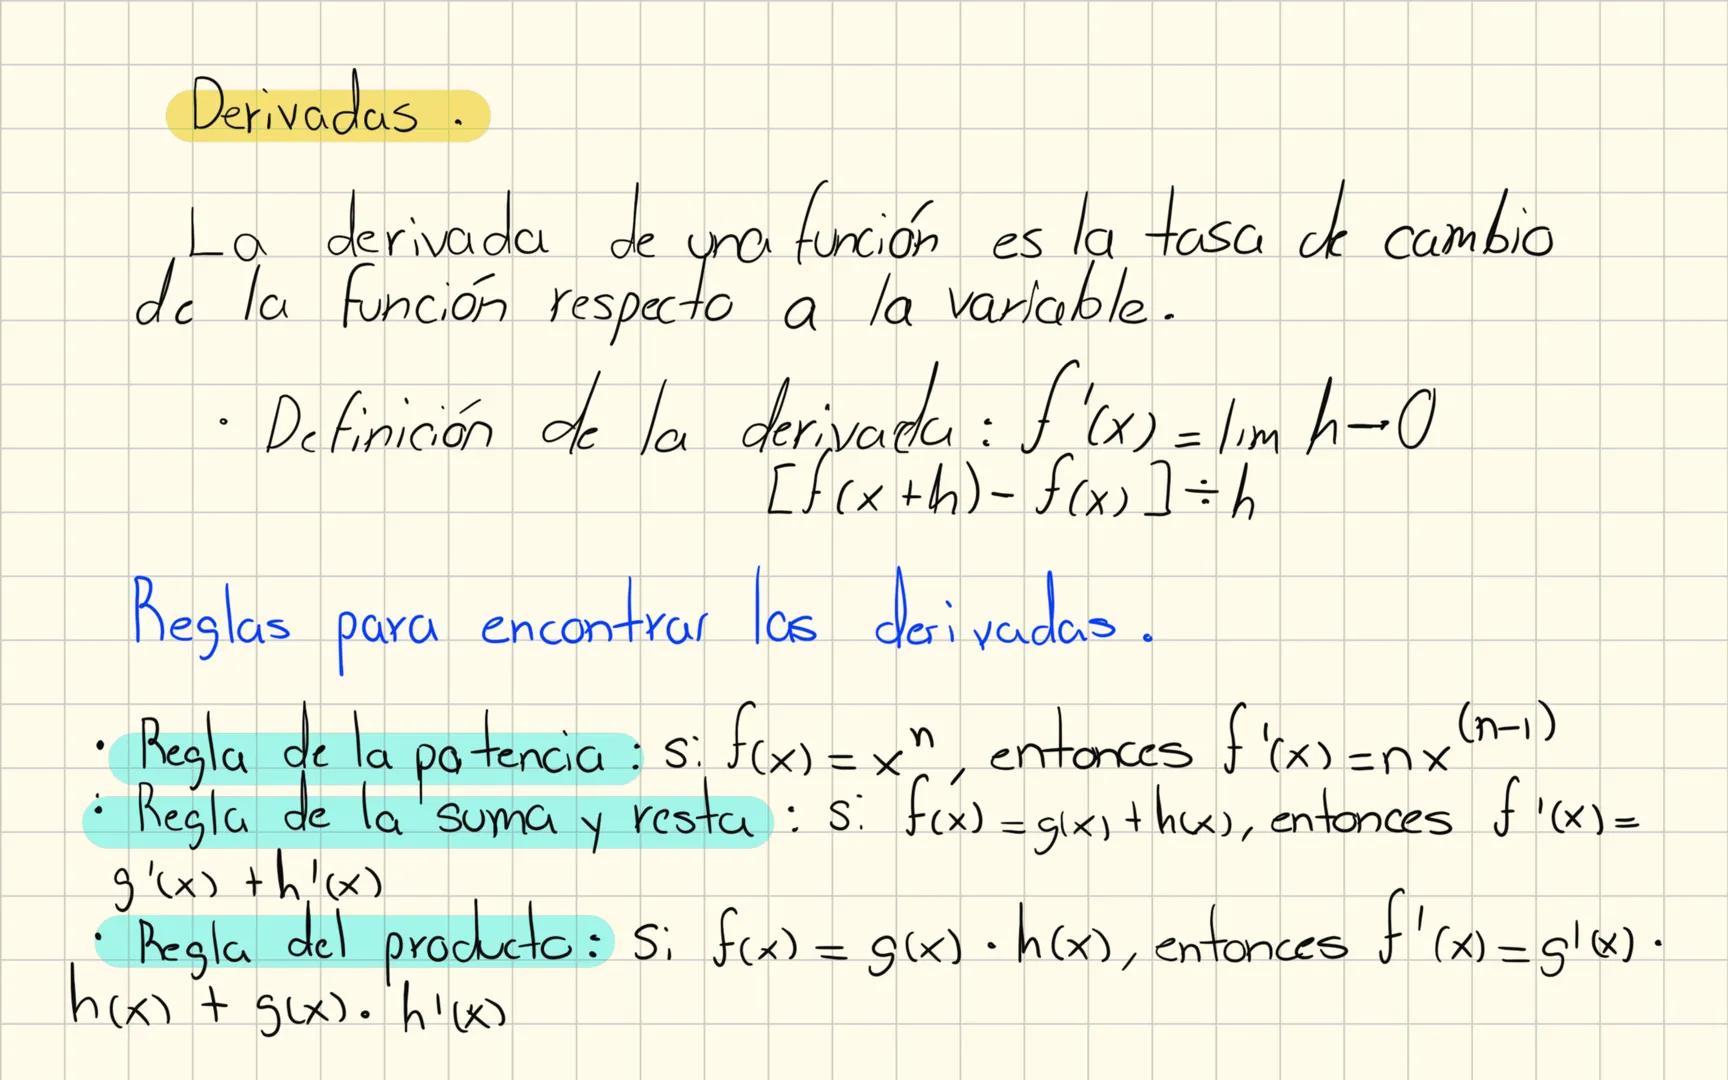 Derivadas.
La derivada de una función es la tasa de cambio
de la función respecto a la variable.
· Definición de la derivada: f'(x) = lim h→0
[f(x+h) - f(x)] ÷ h
Reglas para encontrar las derivadas.
· Regla de la potencia: si f(x) = xⁿ, entonces f'(x) = nx⁽ⁿ⁻¹⁾
· Regla de la suma y resta: si f(x) = g(x) + h(x), entonces f'(x) =
g'(x) + h'(x)
· Regla del producto: Si f(x) = g(x) · h(x), entonces f'(x) = g'(x) ·
h(x) + g(x) · h'(x)